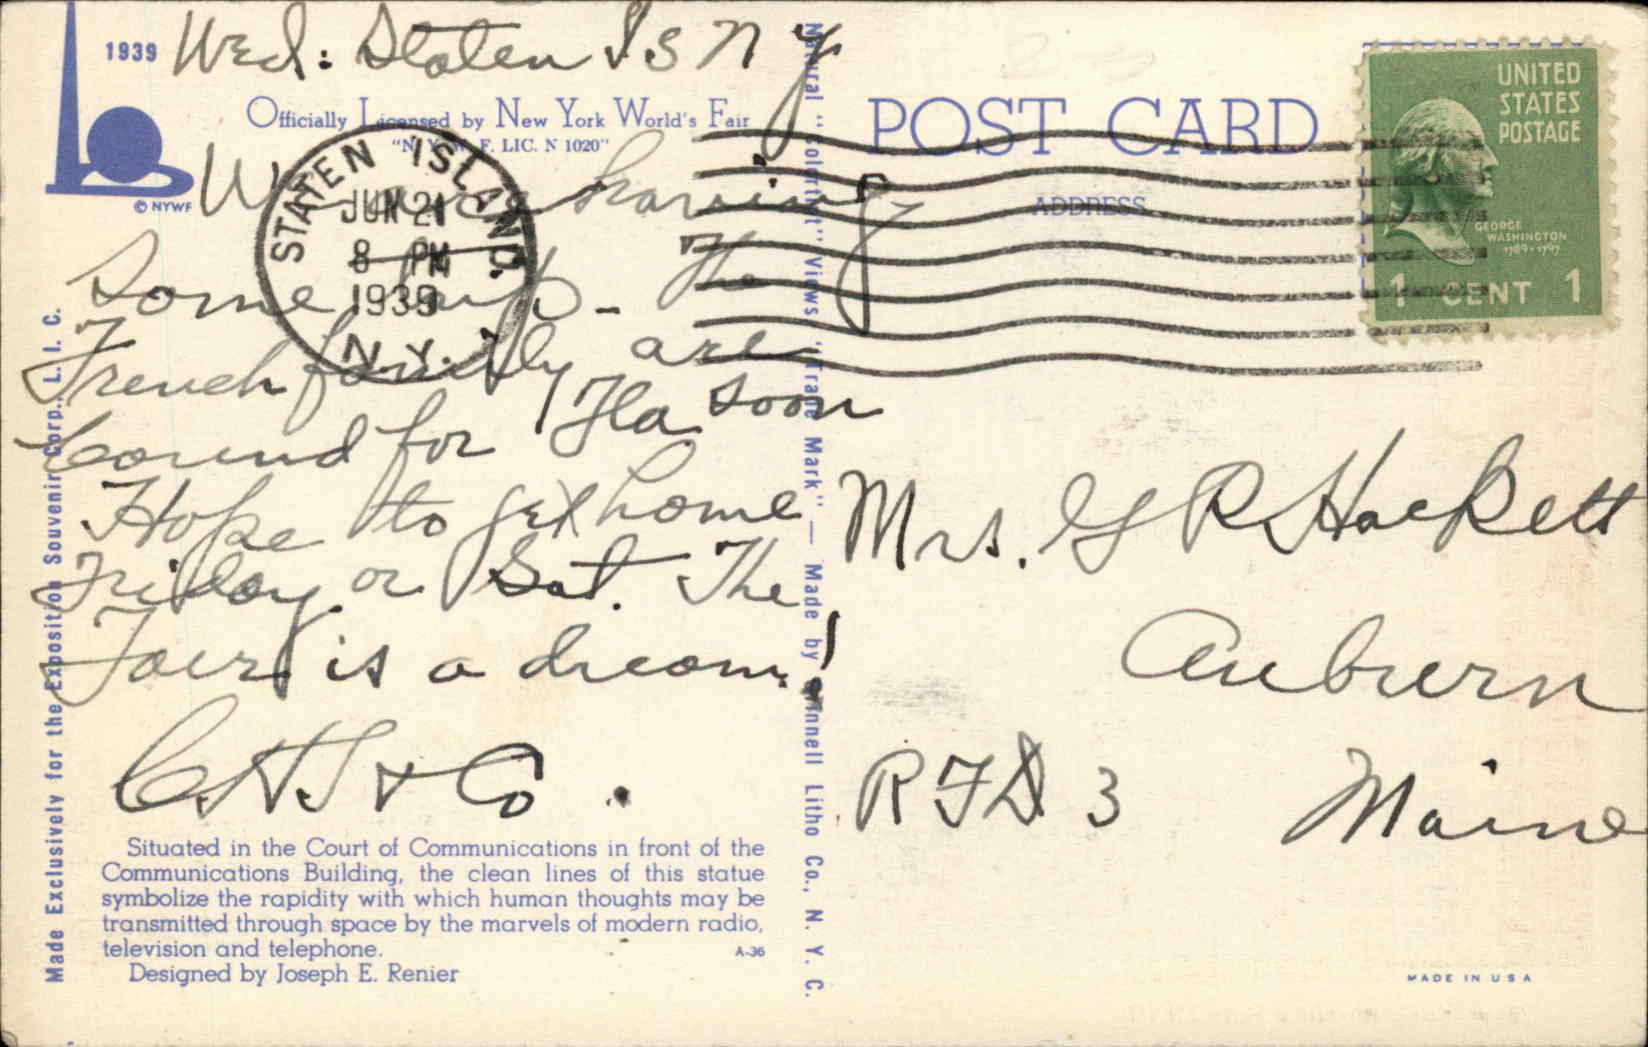 1939
Wed: Staten Is N Y
Officially Licensed by New York World's Fair
"N. Y. W. F. LIC. N 1020"
© NYWF
We are having
some trip - The
French family are
bound for Fla soon
Hope to get home
Friday or Sat. The
Fair is a dream!
C H S & Co.
Situated in the Court of Communications in front of the
Communications Building, the clean lines of this statue
symbolize the rapidity with which human thoughts may be
transmitted through space by the marvels of modern radio,
television and telephone. A-36
Designed by Joseph E. Renier
Made Exclusively for the Exposition Souvenir Corp., L. I. C.
Natural "Colortint" Views "Trade Mark" — Made by Grinnell Litho Co., N. Y. C.
STATEN ISLAND.
JUN 21
8 PM
1939
N.Y.
POST CARD
ADDRESS
UNITED
STATES
POSTAGE
GEORGE
WASHINGTON
1789-1797
1 CENT 1
Mrs. G R Hackett
Auburn
RFD 3 Maine
MADE IN USA